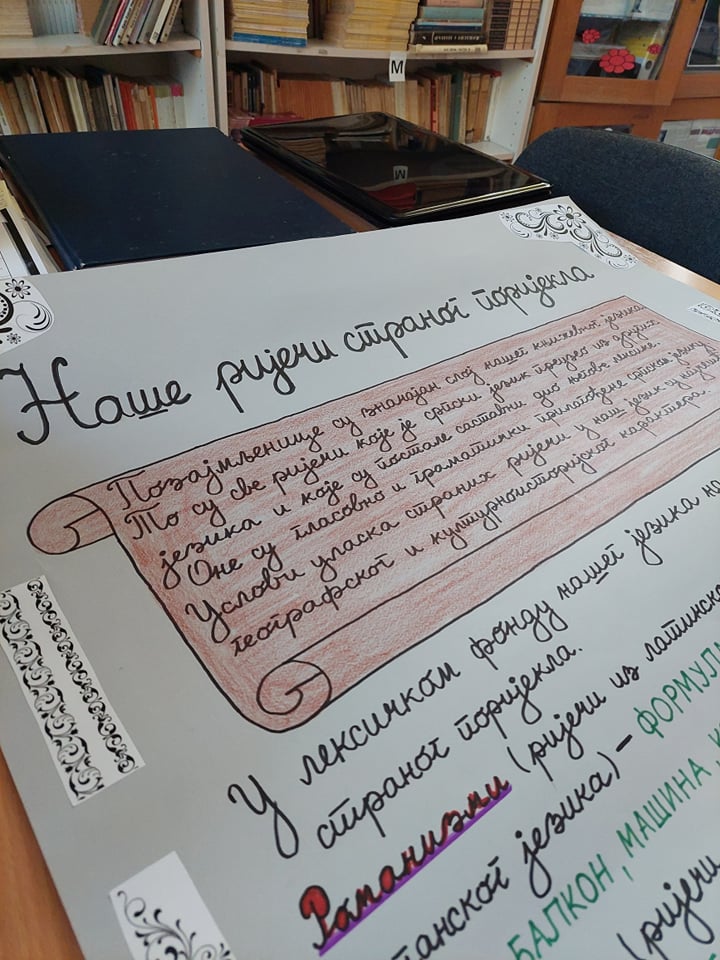 M
Наше ријечи страног поријекла
Позајмљенице су значајан слој нашег књижевног језика.
То су све ријечи које је српски језик преузео из других
језика и које су постале саставни дио његове лексике.
Оне су гласовно и граматички прилагођене српском језику.
Услови уласка страних ријечи у наш језик су
географског и културноисторијског карактера.
У лексичком фонду нашег језика
страног поријекла.
Романизми (ријечи из
језика) – ФОРМУЛА
БАЛКОН, МАШИНА,
(ријечи